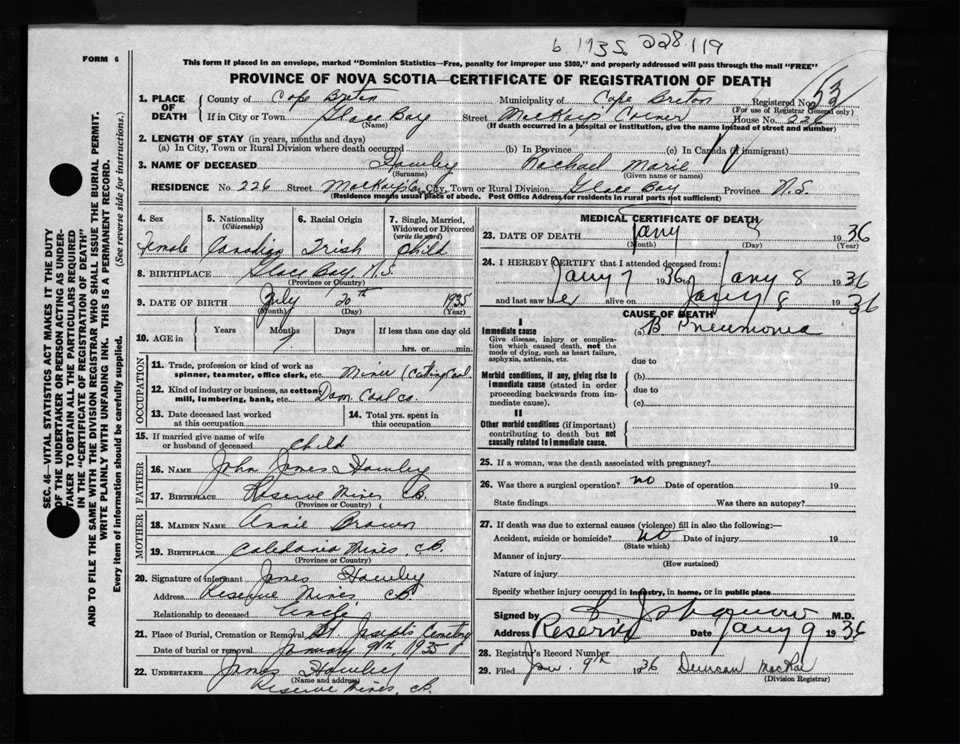 b. 1935 228 119
FORM 6
This form if placed in an envelope, marked "Dominion Statistics—Free, penalty for improper use $300," and properly addressed will pass through the mail "FREE"
PROVINCE OF NOVA SCOTIA—CERTIFICATE OF REGISTRATION OF DEATH
53
1. PLACE OF DEATH County of Cape Breton Municipality of Cape Breton Registered No.
(For use of Registrar General only)
If in City or Town Glace Bay Street MacKays Corner House No. 226
(Name) (If death occurred in a hospital or institution, give the name instead of street and number)
2. LENGTH OF STAY (in years, months and days)
(a) In City, Town or Rural Division where death occurred (b) In Province (c) In Canada (if immigrant)
3. NAME OF DECEASED Hawley Rachael Marie
(Surname) (Given name or names)
RESIDENCE No. 226 Street MacKays Cor City, Town or Rural Division Glace Bay Province N.S.
(Residence means usual place of abode. Post Office Address for residents in rural parts not sufficient)
SEC. 46—VITAL STATISTICS ACT MAKES IT THE DUTY
OF THE UNDERTAKER OR PERSON ACTING AS UNDER-
TAKER TO OBTAIN ALL THE PARTICULARS REQUIRED
IN THE "CERTIFICATE OF REGISTRATION OF DEATH"
AND TO FILE THE SAME WITH THE DIVISION REGISTRAR WHO SHALL ISSUE THE BURIAL PERMIT.
WRITE PLAINLY WITH UNFADING INK. THIS IS A PERMANENT RECORD.
Every item of information should be carefully supplied. (See reverse side for instructions.)
4. Sex 5. Nationality 6. Racial Origin 7. Single, Married,
(Citizenship) Widowed or Divorced
(write the word)
Female Canadian Irish Child
8. BIRTHPLACE Glace Bay, N.S.
(Province or Country)
9. DATE OF BIRTH July 20th 1935
(Month) (Day) (Year)
10. AGE in Years Months Days If less than one day old
hrs. or min.
OCCUPATION
11. Trade, profession or kind of work as
spinner, teamster, office clerk, etc. Miner (Cutting Coal
12. Kind of industry or business, as cotton
mill, lumbering, bank, etc. Dom. Coal Co.
13. Date deceased last worked 14. Total yrs. spent in
at this occupation this occupation
15. If married give name of wife
or husband of deceased Child
FATHER
16. NAME John James Hawley
17. BIRTHPLACE Reserve Mines CB.
(Province or Country)
MOTHER
18. MAIDEN NAME Annie Brown
19. BIRTHPLACE Caledonia Mines CB.
(Province or Country)
20. Signature of informant James Hawley
Address Reserve Mines CB.
Relationship to deceased Uncle
21. Place of Burial, Cremation or Removal St. Josephs Cemetery
Date of burial or removal January 9th, 1935
22. UNDERTAKER James Hawley
(Name and address)
Reserve Mines, CB.
MEDICAL CERTIFICATE OF DEATH
23. DATE OF DEATH Jany 8 1936
(Month) (Day) (Year)
24. I HEREBY CERTIFY that I attended deceased from:
Jany 7 1936 to Jany 8 1936
and last saw her alive on Jany 8 1936
CAUSE OF DEATH
I
Immediate cause (a) B Pneumonia
Give disease, injury or complica-
tion which caused death, not the
mode of dying, such as heart failure,
asphyxia, asthenia, etc. due to
Morbid conditions, if any, giving rise to (b)
immediate cause (stated in order due to
proceeding backwards from im-
mediate cause). (c)
II
Other morbid conditions (if important)
contributing to death but not
causally related to immediate cause.
25. If a woman, was the death associated with pregnancy?
26. Was there a surgical operation? no Date of operation 19
State findings Was there an autopsy?
27. If death was due to external causes (violence) fill in also the following:—
Accident, suicide or homicide? no Date of injury 19
(State which)
Manner of injury
(How sustained)
Nature of injury
Specify whether injury occurred in industry, in home, or in public place
Signed by M.D.
Address Reserve Date Jany 9 1936
28. Registrar's Record Number
29. Filed Jan. 9th 1936 Duncan MacRae
(Division Registrar)